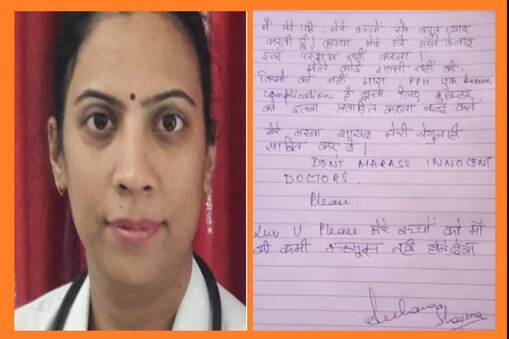 मैं मेरे पति, मेरे बच्चों से बहुत प्यार
करती हूँ। कृपया मेरे मरने के बाद
इन्हें परेशान नहीं करना।
मैंने कोई गलती नहीं की,
किसी को नहीं मारा PPH एक known
complication है इसके लिए
को इतना प्रताड़ित करना बन्द करो
मेरा मरना शायद मेरी बेगुनाही
साबित कर दे।
DONT HARASS INNOCENT
DOCTORS.
Please.
Luv U Please मेरे बच्चों को माँ
की कमी महसूस नहीं होने देना
Sharma